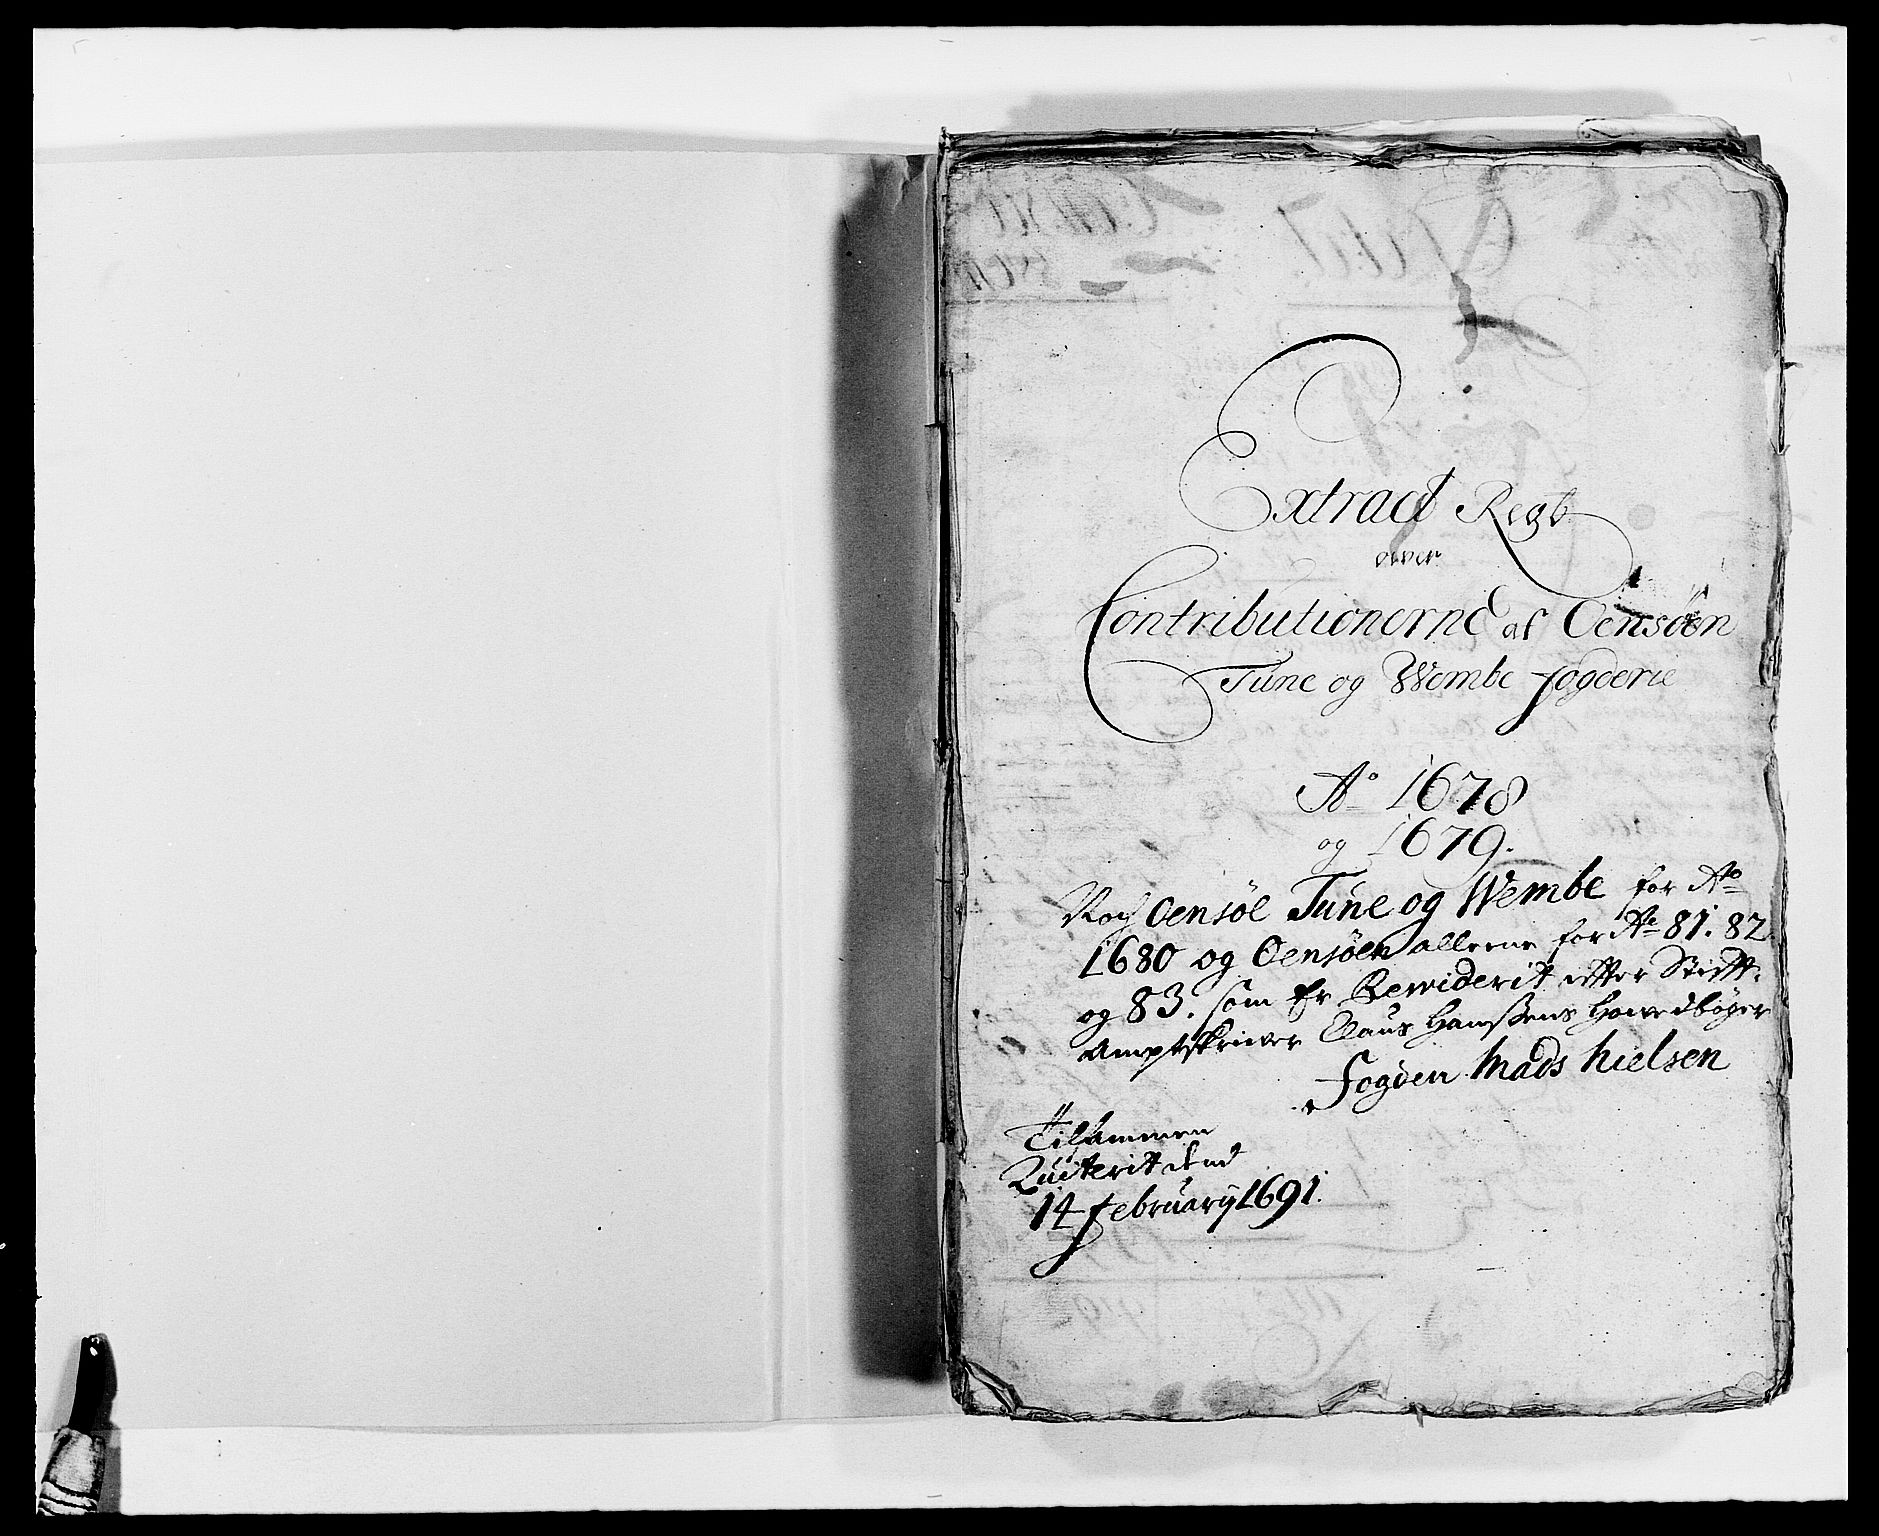 Extract Regb
over
Contributionerne af Oensöen
Tune og Wembe fogderie
Ao 1678
og 1679.
Noch Oensöe Tune og Wembe for Ao
1680 og Oensöen alleene for Ao 81. 82
og 83. som Er Rewiderit effter Stifft-
Amptskriwer Claus Hanßens Howedbøger
Fogden Mads Nielsen
Tilsammen
Quiterit dend
14 february 1691.